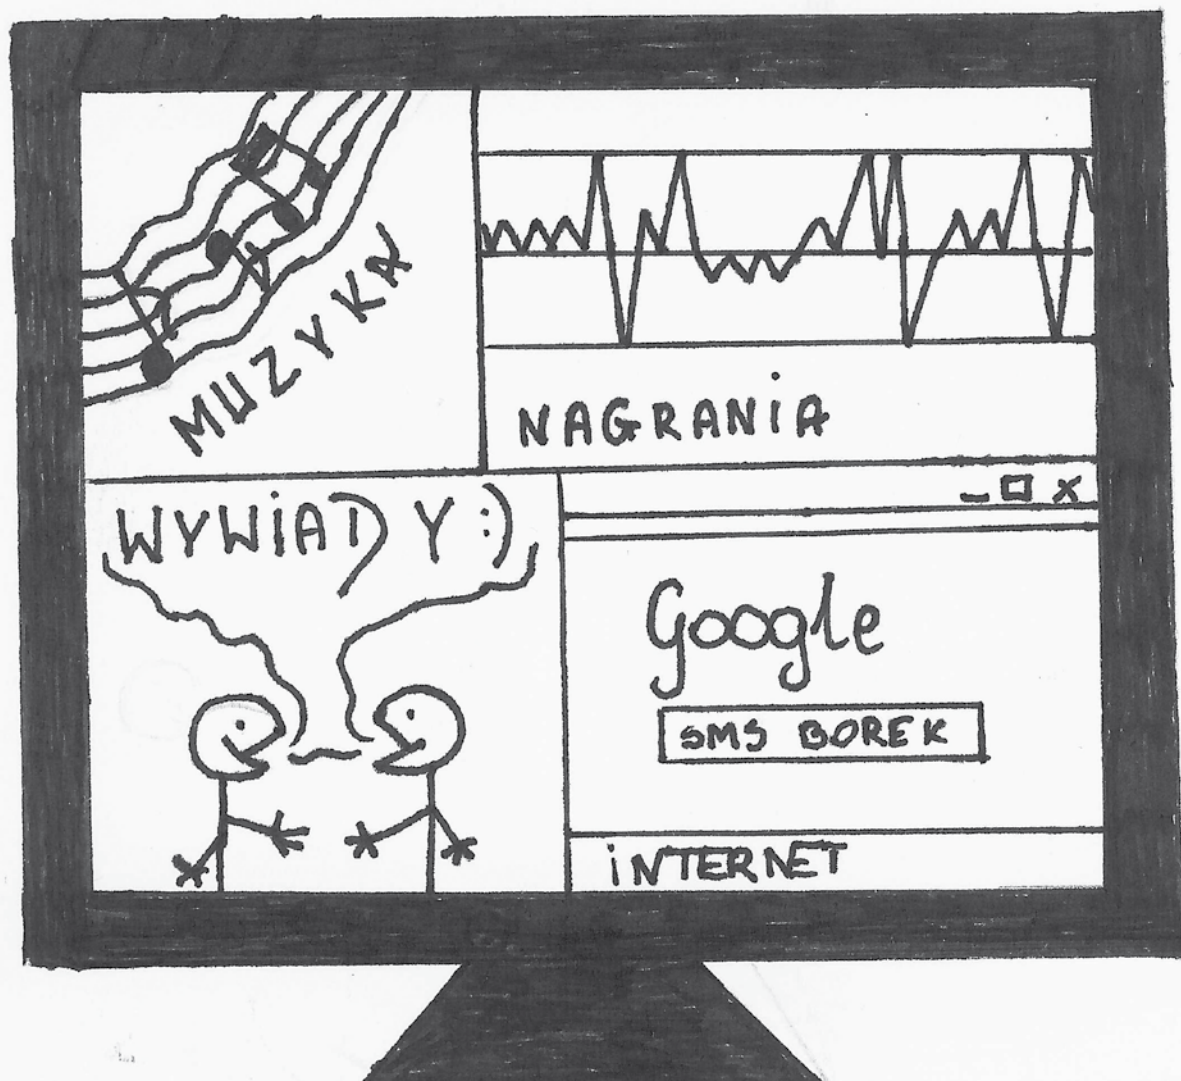 MUZYKA
NAGRANIA
WYWiADY :)
Google
SMS BOREK
iNTERNET